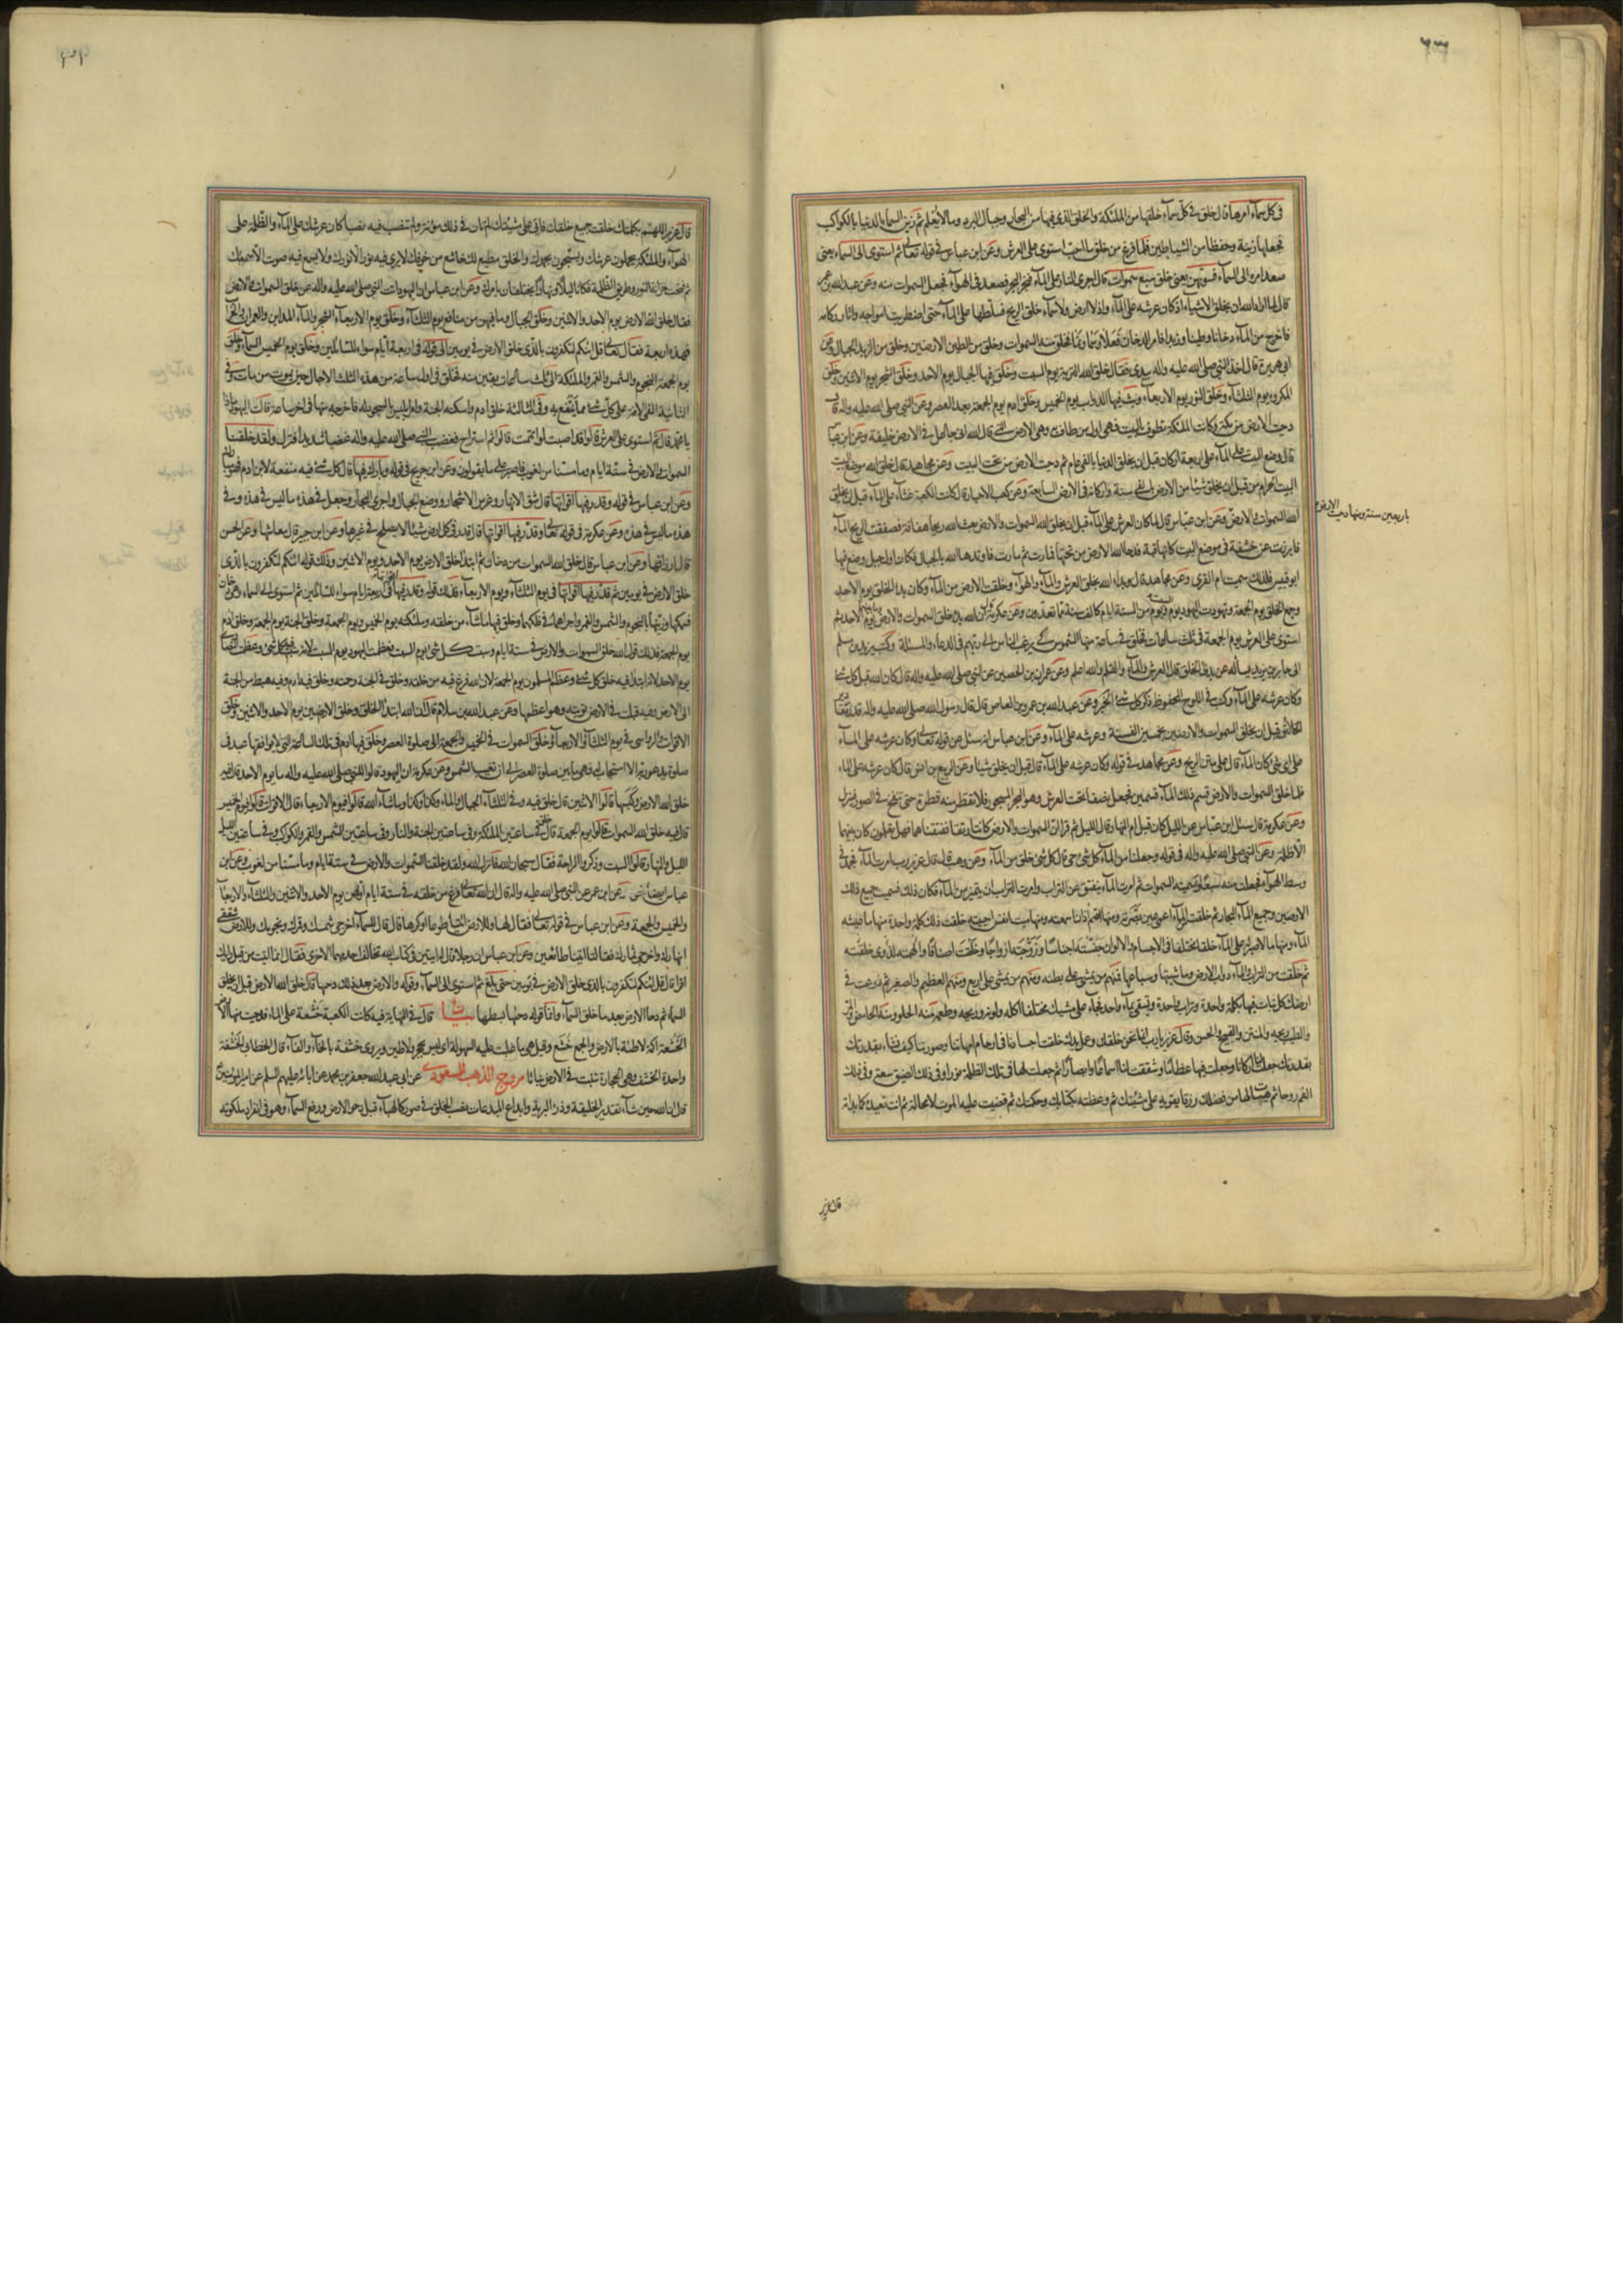 ٦٣
فى كل سمآء امرها قال خلق فى كلّ سمآء خلقها من الملئكة والخلق الذى فيها من البحار وجبال البرد وما لا يُعلم ثم زين السمآء الدنيا بالكواكب
فجعلها زينة وحفظا من الشياطين فلما فرغ من خلق ما احبّ استوى على العرش وعن ابن عباس فى قوله تعالى ثم استوى الى السمآء يعنى
صعد امره الى السمآء فسويهن يعنى خلق سبع سموات قال اجرى النار على المآء فبخر البحر فصعد فى الهوآء فجعل السموات منه وعن عبدالله بن عمرو
قال لما اراد الله ان يخلق الاشياء اذ كان عرشه على المآء واذ لا ارض ولا سمآء خلق الريح فسلّطها على المآء حتى اضطربت امواجه واثار ركامه
فاخرج من المآء دخانا وطينا وزبدا فامر الدخان فعلا وسما ونما فخلق منه السموات وخلق من الطين الارضين وخلق من الزبد الجبال وعن
ابى هريرة قال اخذ النبى صلى الله عليه واله بيدى فقال خلق الله التربة يوم السبت وخلق فيها الجبال يوم الاحد وخلق الشجر يوم الاثنين وخلق
المكروه يوم الثلثآء وخلق النور يوم الاربعآء وبث فيها الدواب يوم الخميس وخلق ادم يوم الجمعة بعد العصر وعن النبى صلى الله عليه واله قال
دحيت الارض من مكة وكانت الملئكة تطوف بالبيت فهى اول من طاف به وهى الارض التى قال الله انى جاعل فى الارض خليفة وعن ابن عبّاس
قال وضع البيت على المآء على اربعة اركان قبل ان يخلق الدنيا بالفى عام ثم دحيت الارض من تحت البيت وعن مجاهد قال خلق الله موضع البيت
البيت الحرام من قبل ان يخلق شيئا من الارض بالفى سنة واركانه فى الارض السابعة وعن كعب الاحبار قال كانت الكعبة غثآء على المآء قبل ان يخلق
الله السموات والارض وعن ابن عبّاس قال لما كان العرش على المآء قبل ان يخلق الله السموات والارض بعث الله ريحا هفافة فصفقت الريح المآء
باربعين سنة ومنها دحيت الارض
فابرزت عن خشفة فى موضع البيت كانها قبّة فدحا الله الارض من تحتها فمادت ثم مادت فاوتدها الله بالجبال فكان اول جبل وضع فيها
ابو قبيس فلذلك سميت ام القرى وعن مجاهد قال بدء الله بخلق العرش والمآء والهوآء وخلقت الارض من المآء وكان بدء الخلق يوم الاحد
وجمع الخلق يوم الجمعة وتهودت اليهود يوم السبت ويوم من الستة ايام كالف سنة مما تعدّون وعن عكرمة قال ان الله بدء خلق السموات والارض وما بينهما يوم الاحد ثم
استوى على العرش يوم الجمعة فى ثلث ساعات فخلق فى ساعة منها الشموس كى يرغب الناس الى ربهم فى الدعآء والمسئلة وكتب يزيد بن مسلم
الى جابر بن زيد يسأله عن بدو الخلق قال العرش والمآء والقلم والله اعلم وعن عمران بن الحصين عن النبى صلى الله عليه واله قال كان الله قبل كل شئ
وكان عرشه على المآء وكتب فى اللوح المحفوظ ذكر كل شئ الخبر وعن عبد الله بن عمرو بن العاص قال قال رسول الله صلى الله عليه واله قدّر الله مقادير
الخلائق قبل ان يخلق السموات والارضين بخمسين الف سنة وعرشه على المآء وعن ابن عباس انه سئل عن قوله تعالى وكان عرشه على المآء
على اى شئ كان المآء قال على متن الريح وعن مجاهد فى قوله وكان عرشه على المآء قال قبل ان يخلق شيئا وعن الربيع بن انس قال كان عرشه على الماء
فلما خلق السموات والارض قسم ذلك المآء قسمين فجعل نصفا تحت العرش وهو البحر المسجور فلا تقطر منه قطرة حتى ينفخ فى الصور فينزل
وعن عكرمة قال سئل ابن عبّاس عن الليل كان قبل ام النهار قال الليل ثم قرأ ان السموات والارض كانتا رتقا ففتقناهما فهل تعلمون كان بينهما
الا ظلمة وعن النبى صلى الله عليه واله فى قوله وجعلنا من المآء كل شئ حى قال كل شئ خلق من المآء وعن وهب قال قال عزير رب امرت المآء فجمد فى
وسط الهوآء فجعلت منه سبعًا وسميته السموات ثم امرت المآء ينفتق عن التراب وامرت التراب ان يتميز من المآء فكان ذلك فسميت جميع ذلك
الارضين وجميع المآء البحار ثم خلقت من المآء اعمى عين بصّرته ومنها اصم اذان اسمعته ومنها ميت انفس احييته خلقت ذلك بكلمة واحدة منها ما عيشه
المآء ومنها ما لا صبر له على المآء خلقا مختلفا فى الاجسام والالوان جنّسته اجناسًا وزوّجته ازواجًا وخلقت اصنافًا والهمته الذى خلقته
ثم خلقت من التراب والمآء دواب الارض وماشيتها وسباعها فمنهم من يمشى على بطنه ومنهم من يمشى على اربع ومنهم العظيم والصغير ثم زرعت فى
ارضك كل نبات فيها بكلمة واحدة وتراب واحدة وتسقى بمآء واحد فجآء على مشيتك مختلفا اكله ولونه وريحه وطعمه منه الحلو ومنه الحامض والمر
والطيب ريحه والمنتن والقبيح والحسن وقال عزير يا رب انما نحن خلقك وعمل يدك خلقت اجسادنا فى ارحام امهاتنا وصورتنا كيف تشآء بقدرتك
بقدرتك جعلت لنا اركانا وجعلت فيها عظاما وشققت لنا اسماعًا وابصارًا ثم جعلت لها فى تلك الظلمة نورا وفى ذلك الضيق سعة وفى ذلك
الغم روحا ثم هيأت لها من فضلك رزقا يقويه على مشيتك ثم وعظته بكتابك وحكمتك ثم قضيت عليه الموت لا محالة ثم انت تعيده كما بدأته
قال عزير
قال عزير اللهم بكلمتك خلقت جميع خلقك فاتى على مشيتك لم تان فى ذلك مؤنة ولم تنصب فيه نصبا كان عرشك على المآء والظلمة على
الهوآء والملئكة يحملون عرشك ويسبّحون بحمدك والخلق مطيع لك خاشع من خوفك لا يرى فيه نور الا نورك ولا يسمع فيه صوت الا سمعك
ثم فتحت خزانة النور وطريق الظلمة فكانا ليلا ونهارا يختلفان بامرك وعن ابن عباس ان اليهود اتت النبى صلى الله عليه واله عن خلق السموات والارض
فقال خلق الله الارض يوم الاحد والاثنين وخلق الجبال وما فيهن من منافع يوم الثلثآء وخلق يوم الاربعآء الشجر والمآء والمداين والعمران والخراب
فهذه اربعة فقال تعالى قل ائنكم لتكفرون بالّذى خلق الارض فى يومين الى قوله فى اربعة ايّام سواء للسّائلين وخلق يوم الخميس السمآء وخلق
يوم الجمعة النجوم والشمس والقمر والملئكة الى ثلث ساعات بقين منه فخلق فى اول ساعة من هذه الثلث الاجال حين يموت من مات وفى
الثانية القى الافة على كل شئ مما ينتفع به وفى الثالثة خلق ادم واسكنه الجنة وامر ابليس بالسجود له فاخرجه منها فى اخر ساعة قالت اليهود ثم ماذا
يا محمد قال ثم استوى على العرش قالوا قد اصبت لو اتممت قالوا ثم استراح فغضب النبى صلى الله عليه واله غضبا شديدا فنزل ولقد خلقنا
السموات والارض فى ستّة ايام وما مسّنا من لغوب فاصبر على ما يقولون وعن ابن جريج فى قوله وبارك فيها قال كل شئ فيه منفعة لابن ادم فهو مبارك
وعن ابن عباس فى قوله وقدر فيها اقواتها قال شق الانهار وغرس الاشجار ووضع الجبال واجرى البحار وجعل فى هذه ما ليس فى هذه وفى
هذه ما ليس فى هذه وعن عكرمة فى قوله تعالى وقدّر فيها اقواتها قال قدر فى كل ارض شيئا لا يصلح فى غيرها وعن ابن جبير قال معاشها وعن الحسن
قال ارزاقها وعن ابن عباس قال خلق الله السموات من دخان ثم ابتدأ خلق الارض يوم الاحد ويوم الاثنين وذلك قوله ائنكم لتكفرون بالّذى
خلق الارض فى يومين ثم قدّر فيها اقواتها فى يوم الثلثآء ويوم الاربعآء فذلك قوله وقدر فيها اقواتها فى اربعة ايام سواء للسّائلين ثم استوى الى السماء وهى دخان
فسمكها وزينها بالنجوم والشمس والقمر واجراهما فى فلكهما وخلق فيها ما شآء من خلقه وملئكته يوم الخميس ويوم الجمعة وخلق الجنة يوم الجمعة وخلق ادم
يوم الجمعة فذلك قول الله خلق السموات والارض فى ستة ايام وسبت كل شئ يوم السبت فعظمت اليهود يوم السبت لانه سبت فيه كل شئ وعظمت النصارى
يوم الاحد لانه ابتدأ فيه خلق كل شئ وعظم المسلمون يوم الجمعة لان الله فرغ فيه من خلقه وخلق فى الجنة رحمته وخلق فيه ادم وفيه هبط من الجنة
الى الارض وفيه قبلت فى الارض توبته وهو اعظمها وعن عبد الله بن سلام قال ان الله ابتدأ الخلق وخلق الارضين يوم الاحد والاثنين وخلق
الاقوات والرواسى فى يوم الثلثآء والاربعآء وخلق السموات فى الخميس والجمعة الى صلوة العصر وخلق فيها ادم فى تلك الساعة التى لا يوافقها عبد فى
صلوة يدعو ربّه الا استجاب له فهى ما بين صلوة العصر الى ان تغيب الشمس وعن عكرمة ان اليهود قالوا للنبى صلى الله عليه واله ما يوم الاحد قال فيه
خلق الله الارض وكبسها قالوا الاثنين قال خلق فيه وفى الثلثآء الجبال والماء وكذا وكذا وما شآء الله قالوا فيوم الاربعاء قال الاقوات قالوا فيوم الخميس
قال فيه خلق الله السموات قالوا يوم الجمعة قال خلق فى ساعتين الملئكة وفى ساعتين الجنة والنار وفى ساعتين الشمس والقمر والكواكب وفى ساعتين الليل
الليل والنهار قالوا السبت وذكروا الراحة فقال سبحان الله فانزل الله ولقد خلقنا السّموات والارض فى ستة ايام وما مسّنا من لغوب وعن ابن
عباس ايضا نحوه وعن ابن عمر عن النبى صلى الله عليه واله قال ان الله تعالى فرغ من خلقه فى ستة ايام اولهن يوم الاحد والاثنين والثلثآء والاربعآء
والخميس والجمعة وعن ابن عباس فى قوله تعالى فقال لها وللارض ائتيا طوعا او كرها قال قال للسمآء اخرجى شمسك وقمرك ونجومك وللارض شققى
انهارك واخرجى ثمارك فقالتا اتينا طائعين وعن ابن عباس ان رجلا قال له ايتين فى كتاب الله تخالف احديهما الاخرى فقال انما اتيت من قبل رأيك
اقرا قال قل ائنكم لتكفرون بالذى خلق الارض فى يومين حتى بلغ ثم استوى الى السمآء وقوله والارض بعد ذلك دحيها قال خلق الله الارض قبل ان يخلق
السمآء ثم دحا الارض بعد ما خلق السمآء وانما قوله دحيها بسطها بيان قال فى النهاية فيه كانت الكعبة خشعة على الماء فدحيت منها الارض
الخشعة اكمة لاطئة بالارض والجمع خشع وقيل هو ما غلبت عليه السهولة اى ليس بحجر ولا طين ويروى خشفة بالخآء والفآء قال الخطابى الخشفة
واحدة الخشف وهى الحجارة تنبت فى الارض نباتا مروج الذهب للمسعودى عن ابى عبد الله جعفر بن محمد عن ابائه عليهم السلم عن امير المؤمنين
قال ان الله حين شآء تقدير الخليقة وذرء البرية وابداع المبدعات نصب الخلق فى صور كالهبآء قبل دحو الارض ورفع السمآء وهو فى انفراد ملكوته